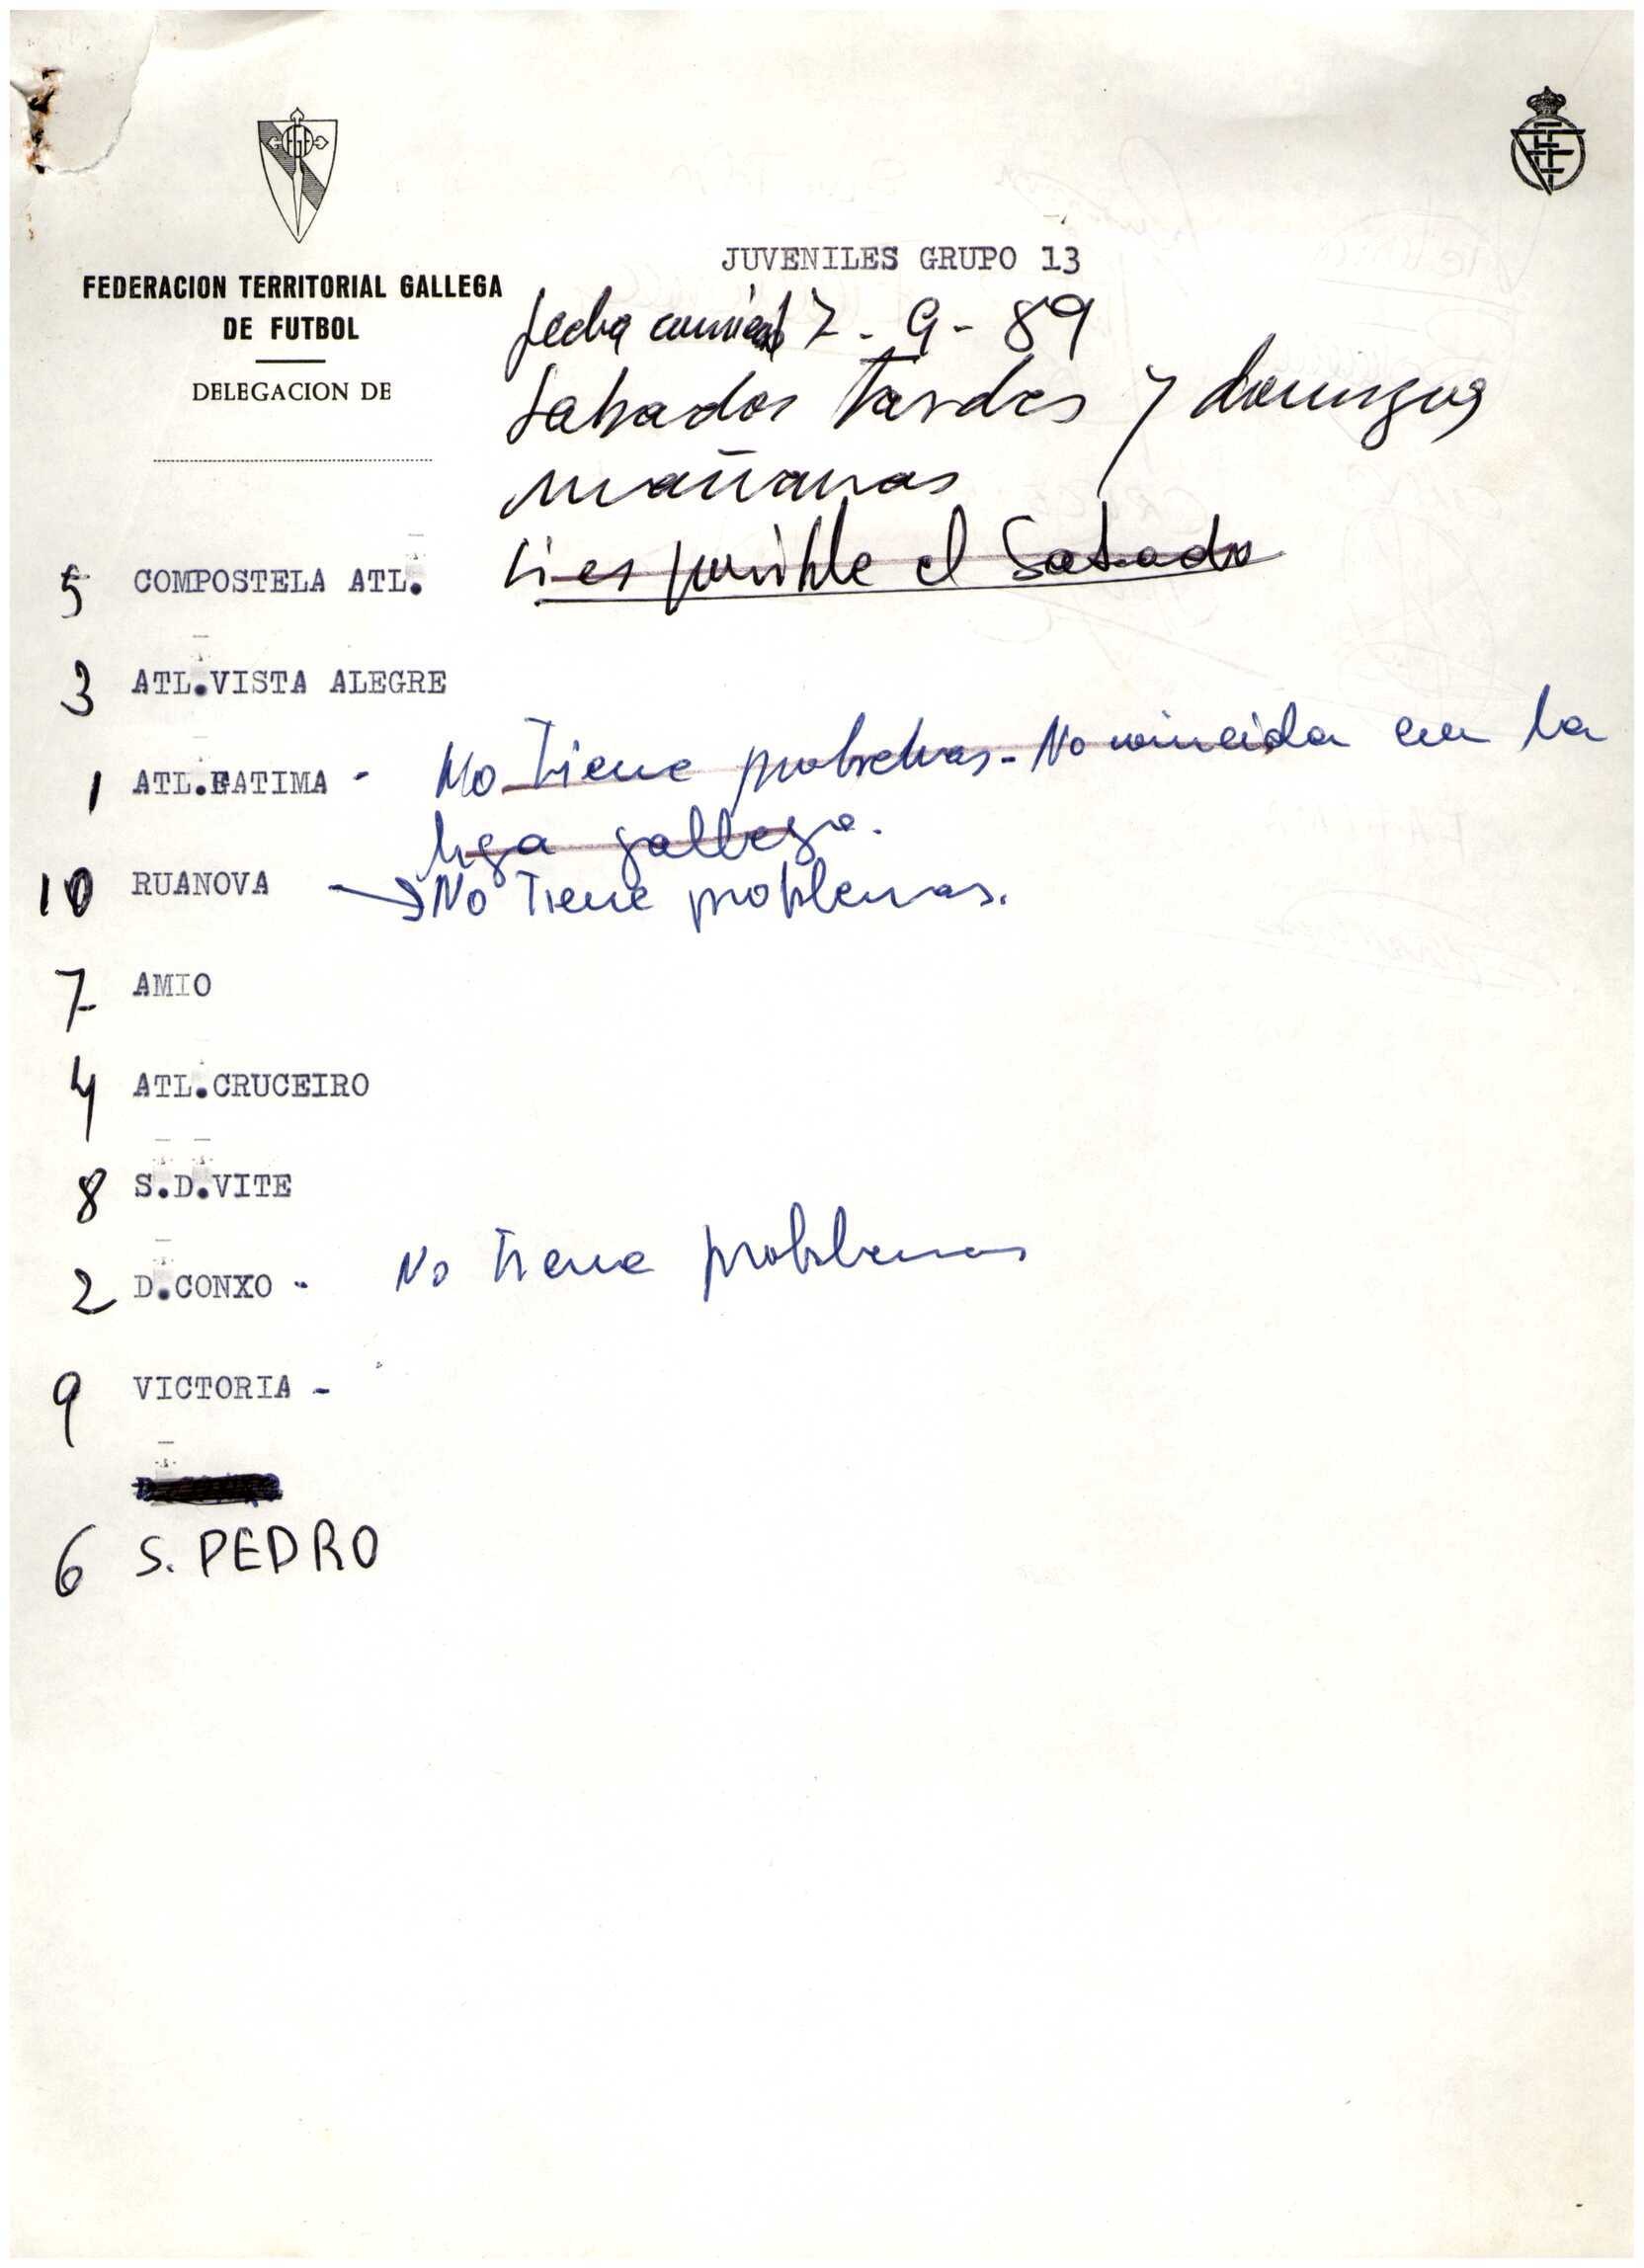 FEDERACION TERRITORIAL GALLEGA
DE FUTBOL
DELEGACION DE
JUVENILES GRUPO 13
fecha 7-9-89
Sabados Tardes y domingos
mañanas
si es posible el Sabado
5 COMPOSTELA ATL.
3 ATL.VISTA ALEGRE
1 ATL.FATIMA - No Tiene problemas - No coincida con la
liga gallega.
10 RUANOVA → No Tiene problemas.
7 AMIO
4 ATL.CRUCEIRO
8 S.D.VITE
2 D.CONXO - No Tiene problemas
9 VICTORIA -
6 S. PEDRO